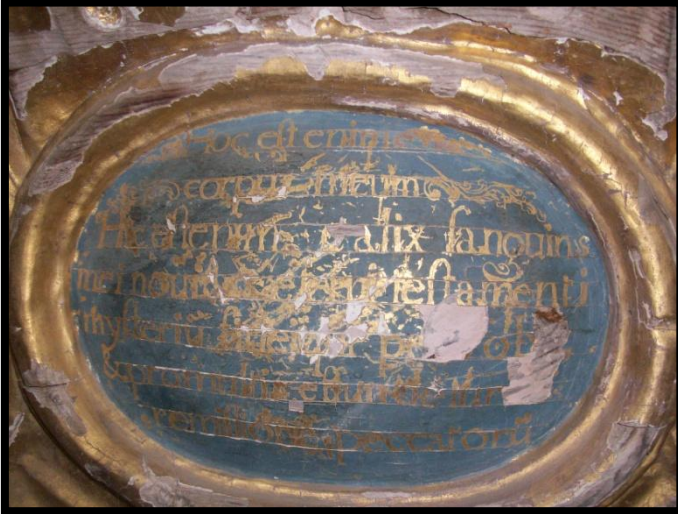 Hoc est enim
corpus meum
Hic est enim calix sanguinis
mei noui & eterni testamenti
mysteriū fidei qui pro
& pro multis effundetur
remissionē peccatorū